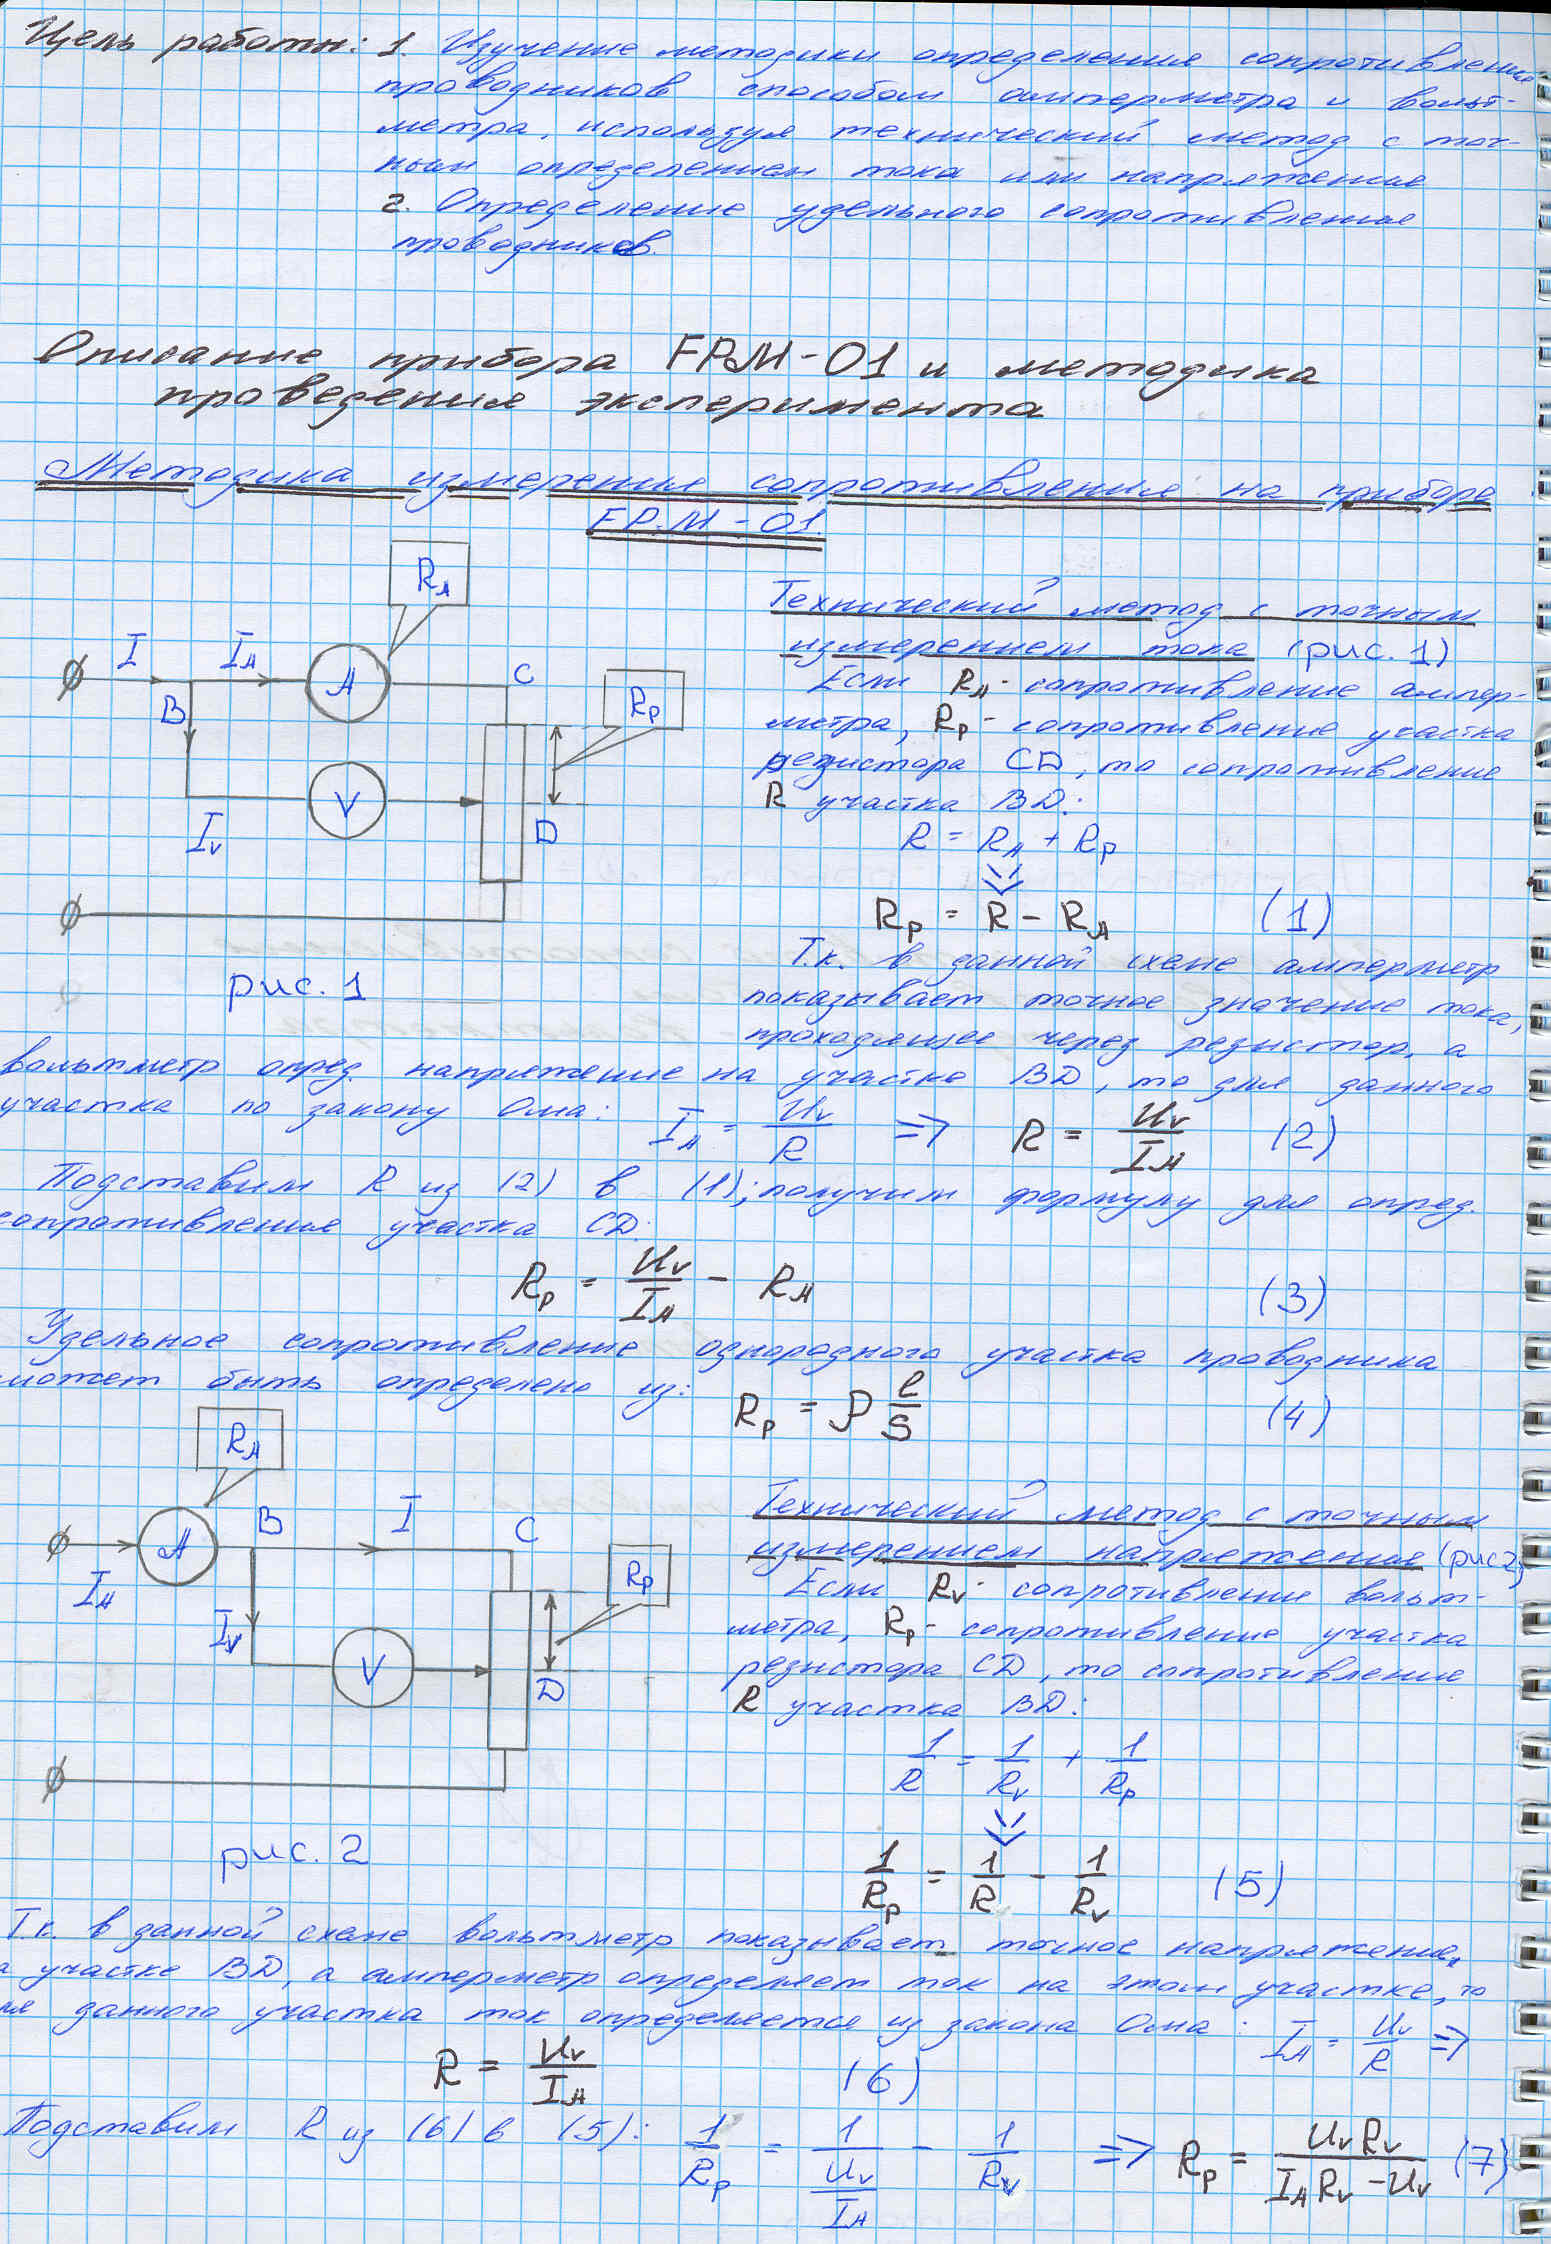 Цель работы: 1. Изучение методики определения сопротивления
проводников способом амперметра и вольт-
метра, используя технический метод с точ-
ным определением тока или напряжения
2. Определение удельного сопротивления
проводников.
Описание прибора FPM-01 и методика
проведения эксперимента
Методика измерения сопротивления на приборе
FPM-01.
R_A
I
I_A
A
C
B
R_P
V
I_V
D
рис. 1
Технический метод с точным
измерением тока (рис. 1)
Если R_A - сопротивление ампер-
метра, R_P - сопротивление участка
резистора CD, то сопротивление
R участка BD:
R = R_A + R_P
⇓
R_P = R - R_A (1)
Т.к. в данной схеме амперметр
показывает точное значение тока,
проходящее через резистор, а
вольтметр опред. напряжение на участке BD, то для данного
участка по закону Ома: I_A = U_V/R => R = U_V/I_A (2)
Подставим R из (2) в (1); получим формулу для опред.
сопротивления участка CD:
R_P = U_V/I_A - R_A (3)
Удельное сопротивление однородного участка проводника
может быть определено из: R_P = ρ l/S (4)
R_A
A
B
I
C
I_A
I_V
R_P
V
D
рис. 2
Технический метод с точным
измерением напряжения (рис2)
Если R_V - сопротивление вольт-
метра, R_P - сопротивление участка
резистора CD, то сопротивление
R участка BD:
1/R = 1/R_V + 1/R_P
⇓
1/R_P = 1/R - 1/R_V (5)
Т.к. в данной схеме вольтметр показывает точное напряжение,
а участке BD, а амперметр определяет ток на этом участке, то
ля данного участка ток определяется из закона Ома: I_A = U_V/R =>
R = U_V/I_A (6)
Подставим R из (6) в (5): 1/R_P = 1/(U_V/I_A) - 1/R_V => R_P = U_V R_V/(I_A R_V - U_V) (7)